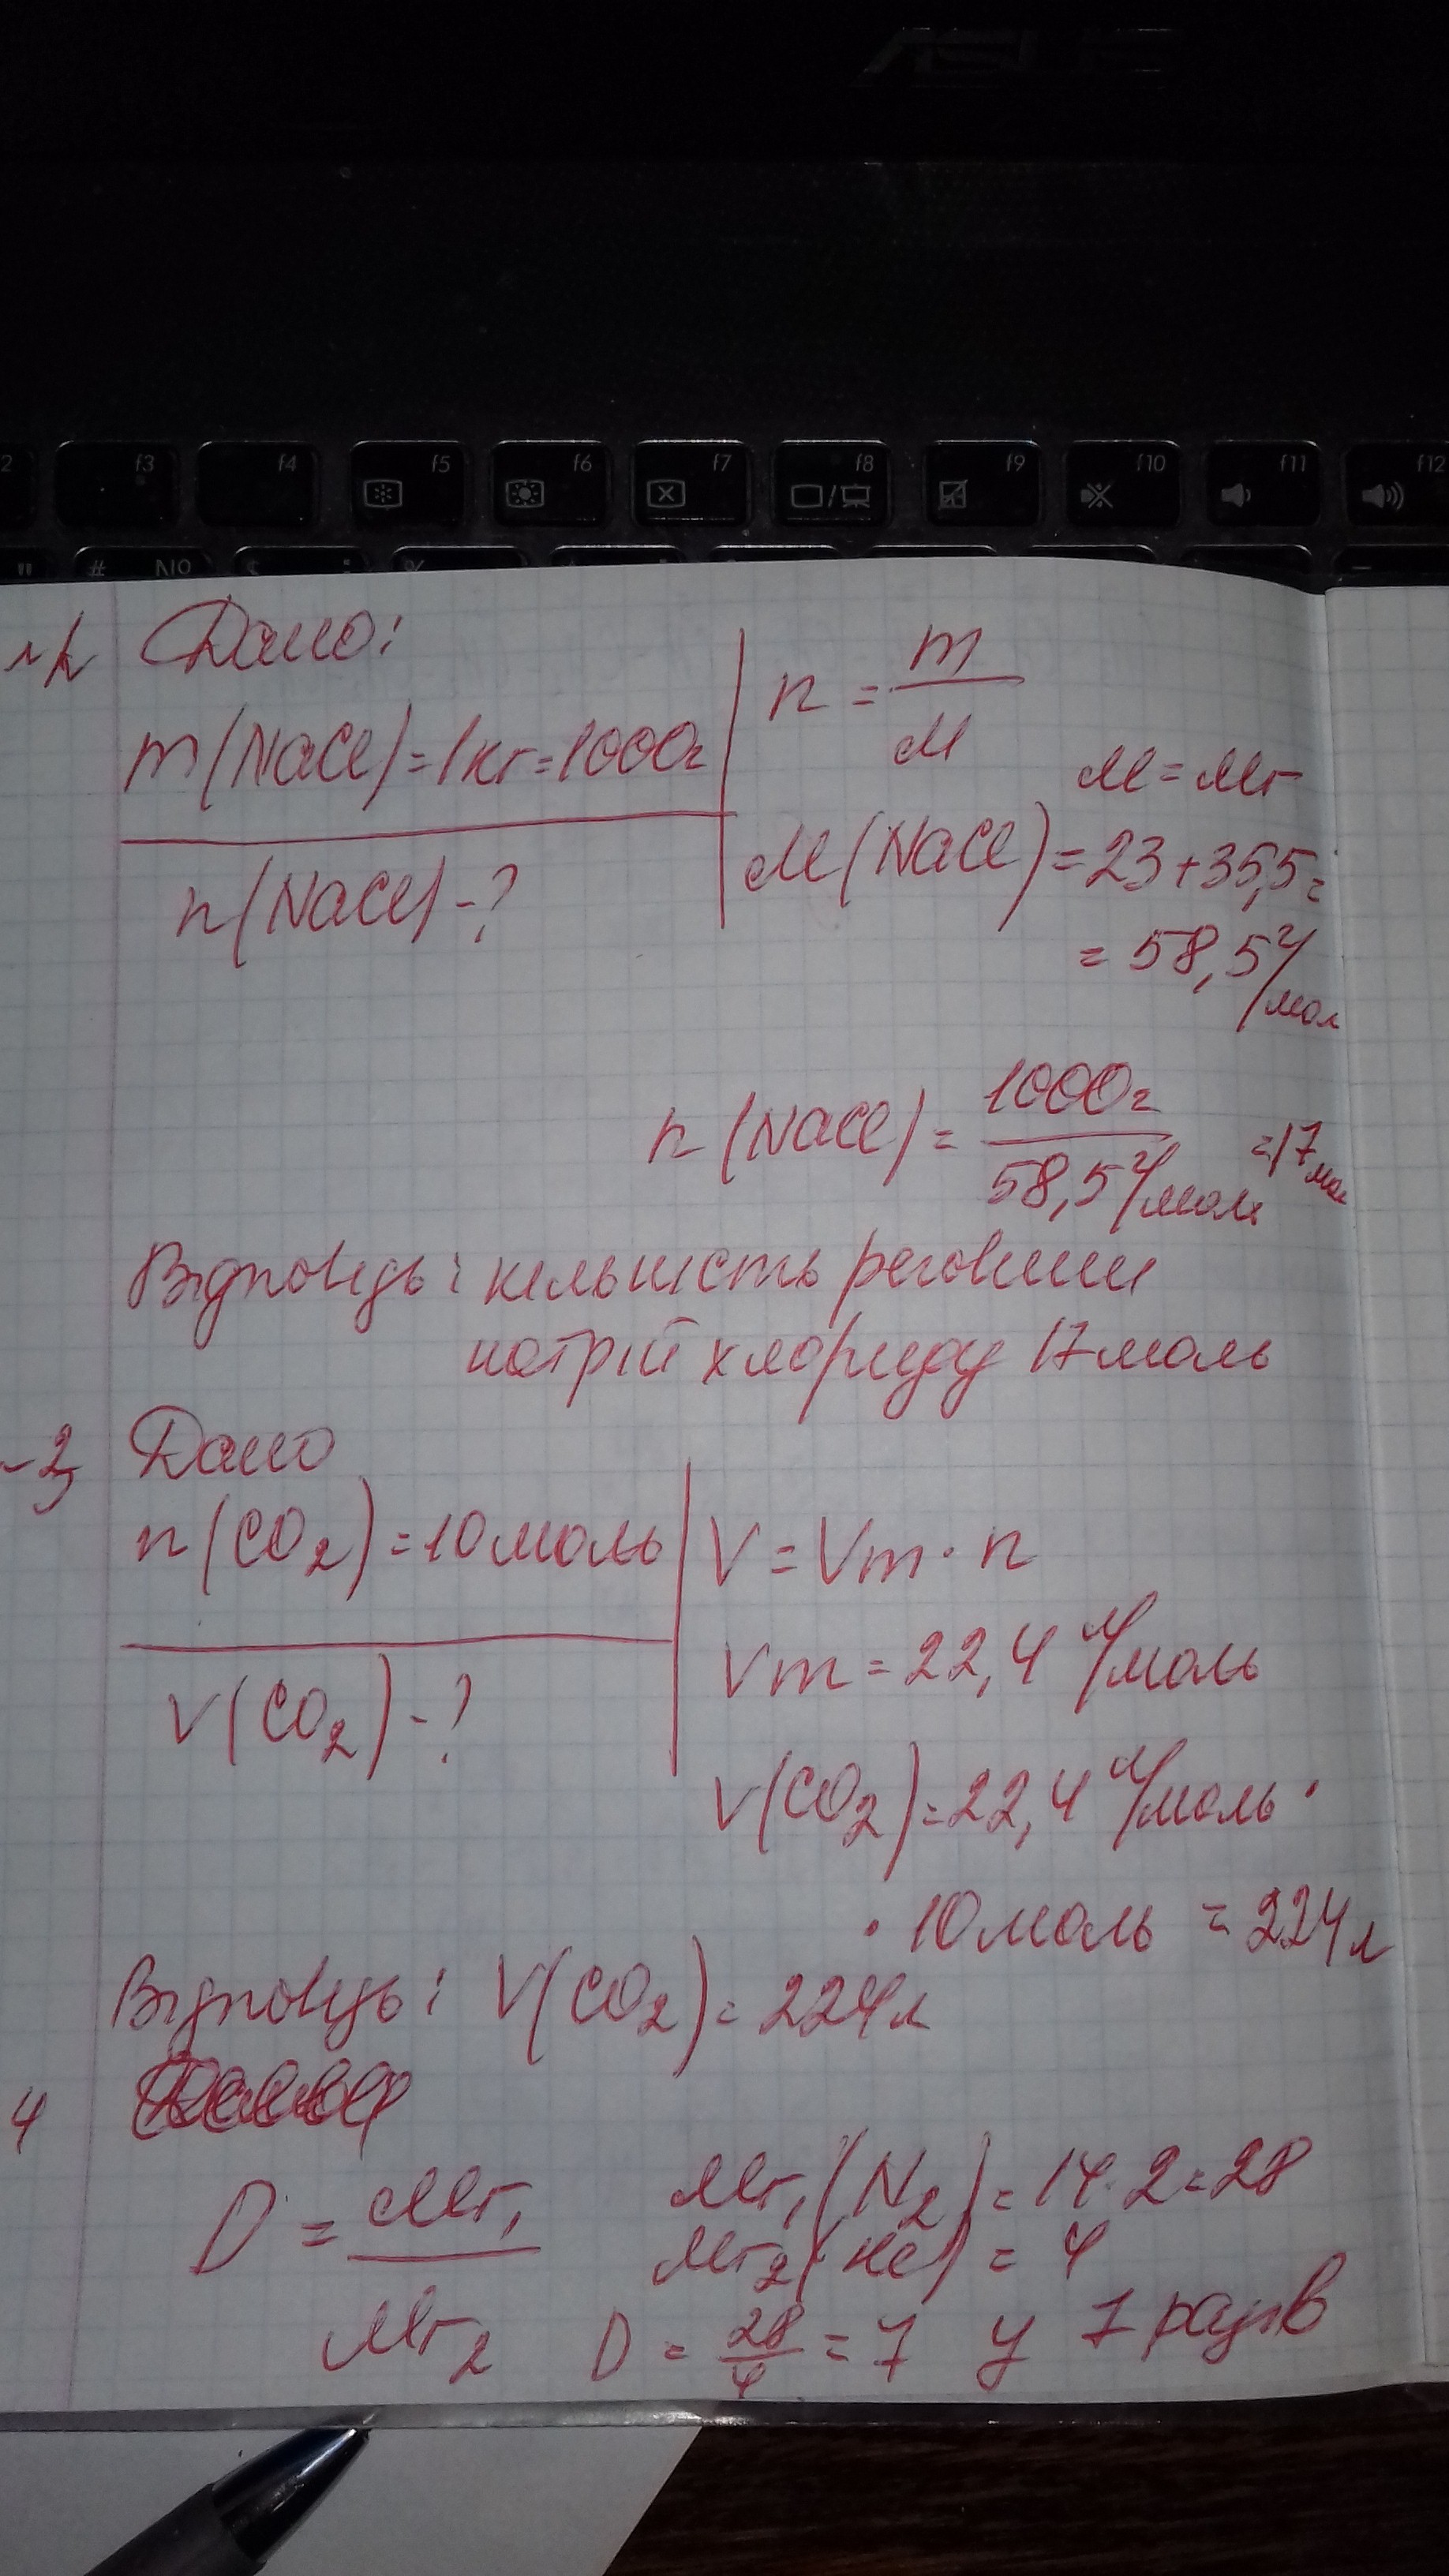 ASUS
f3 f4 f5 f6 f7 f8 f9 f10 f11 f12
" # №
Дано:
n = m / M
m(NaCl)=1кг=1000г
M = Mr
n(NaCl) - ?
M(NaCl) = 23+35,5 =
= 58,5 г/мол
n(NaCl) = 1000г / 58,5 г/моль = 17 мол
Відповідь: кількість речовини
натрій хлориду 17 моль
3 Дано
n(CO2) = 10 моль
V = Vm · n
Vm = 22,4 л/моль
V(CO2) - ?
V(CO2) = 22,4 л/моль ·
· 10 моль = 224 л
Відповідь: V(CO2) = 224л
4
D = Mr1 / Mr2
Mr1(N2) = 14·2=28
Mr2(He) = 4
D = 28/4 = 7 у 7 разів